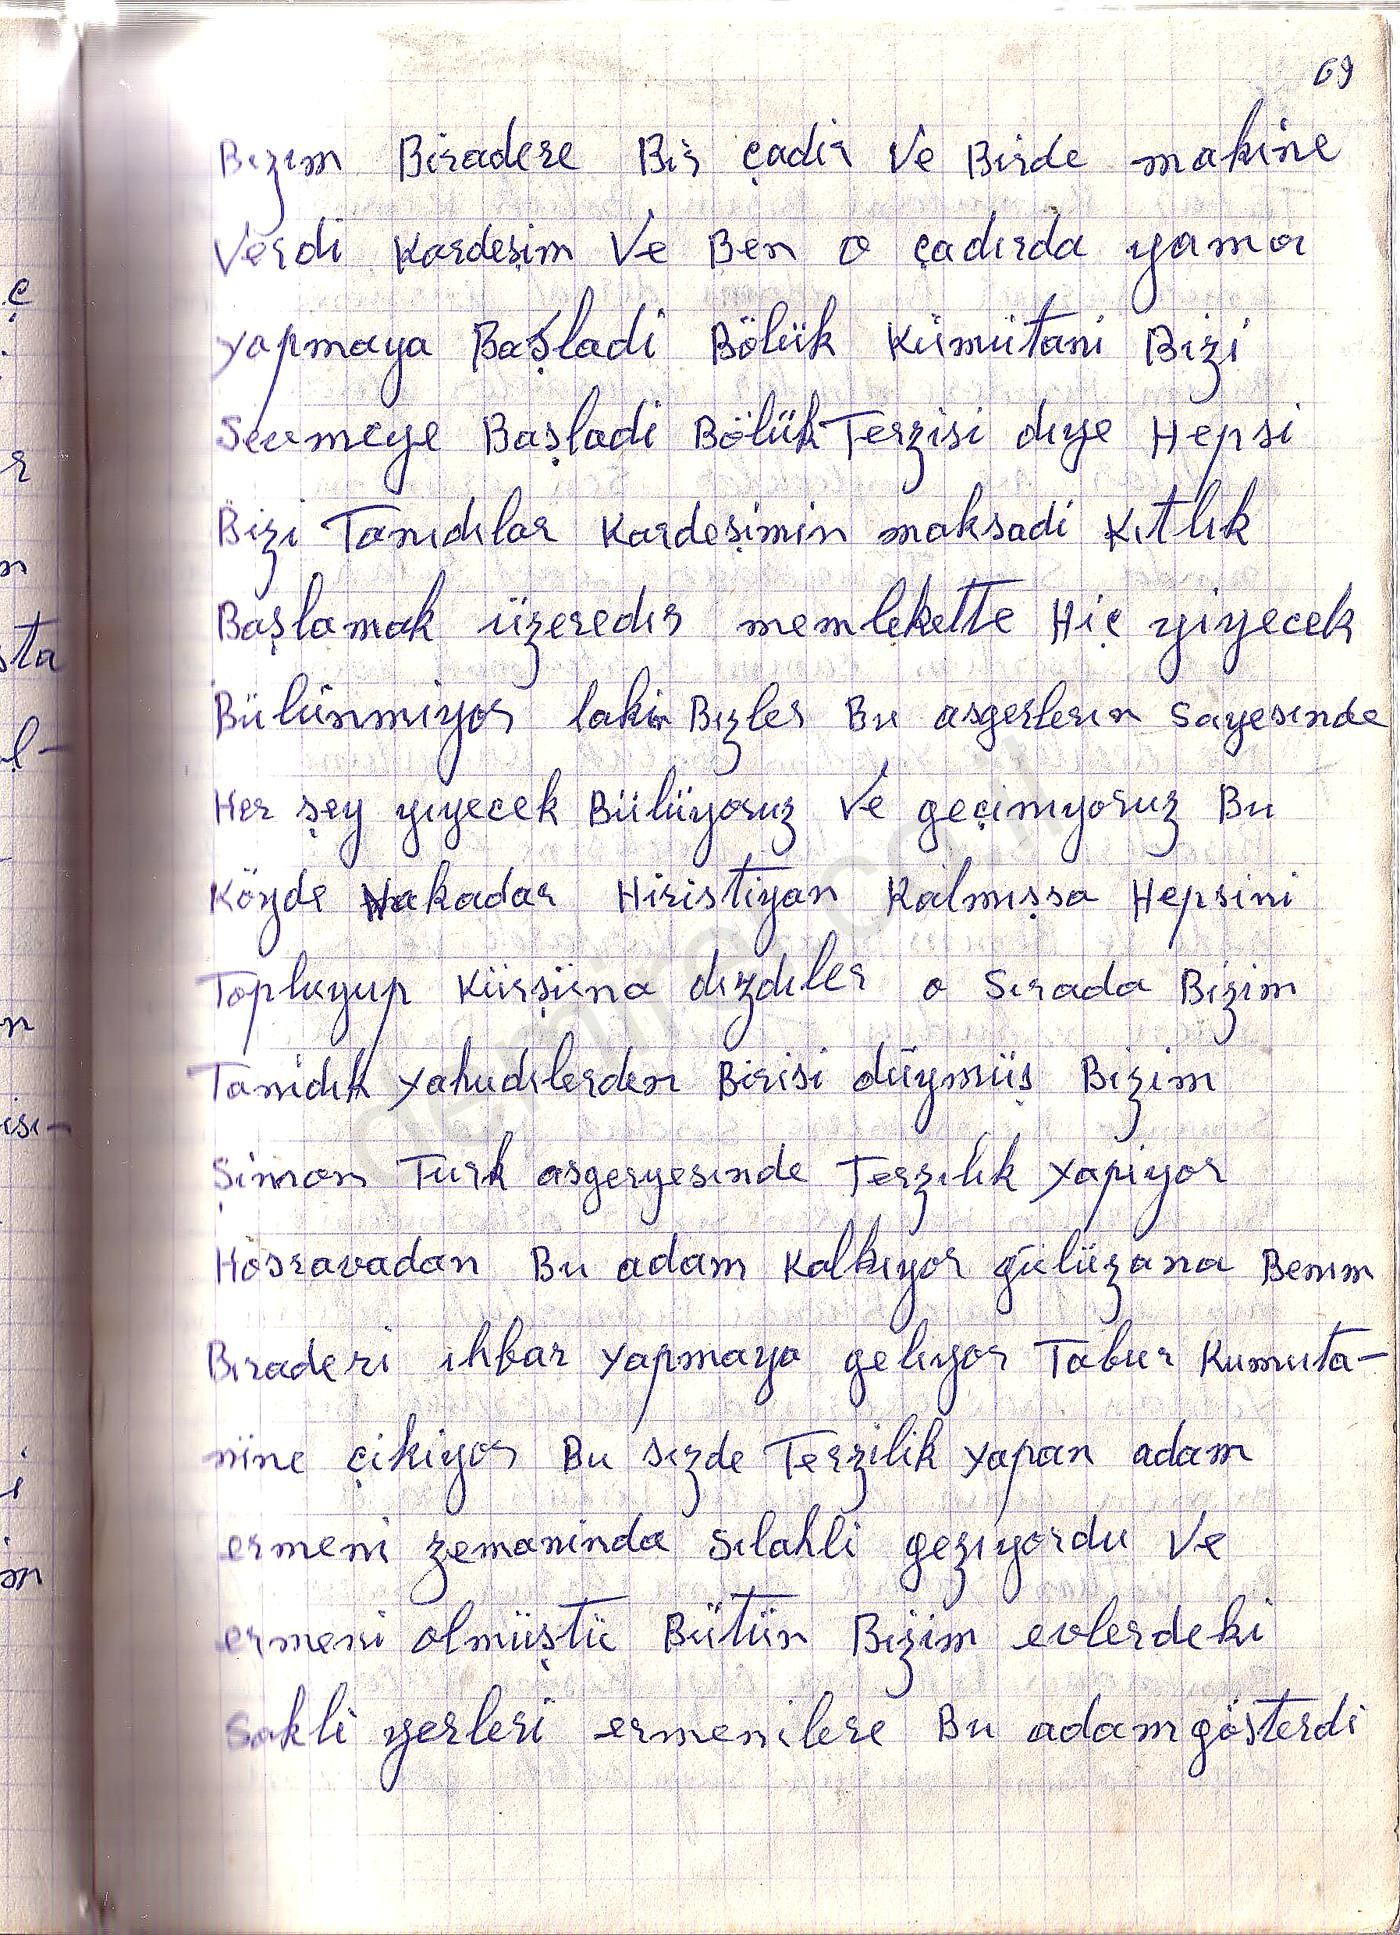 69
Bizim Biradere Bir çadir Ve Birde makine
Verdi Kardeşim Ve Ben o çadırda yama
yapmaya Başladi Bölük Kümütani Bizi
Sevmeye Başladi Bölük Terzisi diye Hepsi
Bizi Tanıdılar Kardeşimin maksadi Kıtlık
Başlamak üzeredir memlekette Hiç yiyecek
Bülünmiyor lakin Bizler Bu asgerlerin Sayesinde
Her şey yiyecek Bülüyoruz Ve geçimyoruz Bu
Köyde Nakadar Hiristiyan Kalmışsa Hepsini
Topluyup Kürşüna dizdiler o Sırada Bizim
Tanidık yahudilerden Birisi düymüş Bizim
Şimon Turk asgeryesinde Terzilik yapiyor
Hosravadan Bu adam Kalkıyor gülüzana Benım
Biraderi ihbar yapmaya geliyor Tabur Kumuta-
nine çikiyor Bu sizde Terzilik yapan adam
ermeni zemaninda Silahli geziyordu Ve
ermeni olmüştü Bütün Bizim evlerdeki
Sakli yerleri ermenilere Bu adam gösterdi